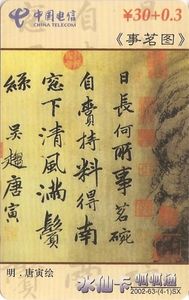 中国电信
CHINA TELECOM
¥30+0.3
《事茗图》
日長何所事茗碗
自賫持料得南
窓下清風滿鬢
絲 吳趨唐寅
明·唐寅绘
水仙卡
2002-63-(4-1)SX